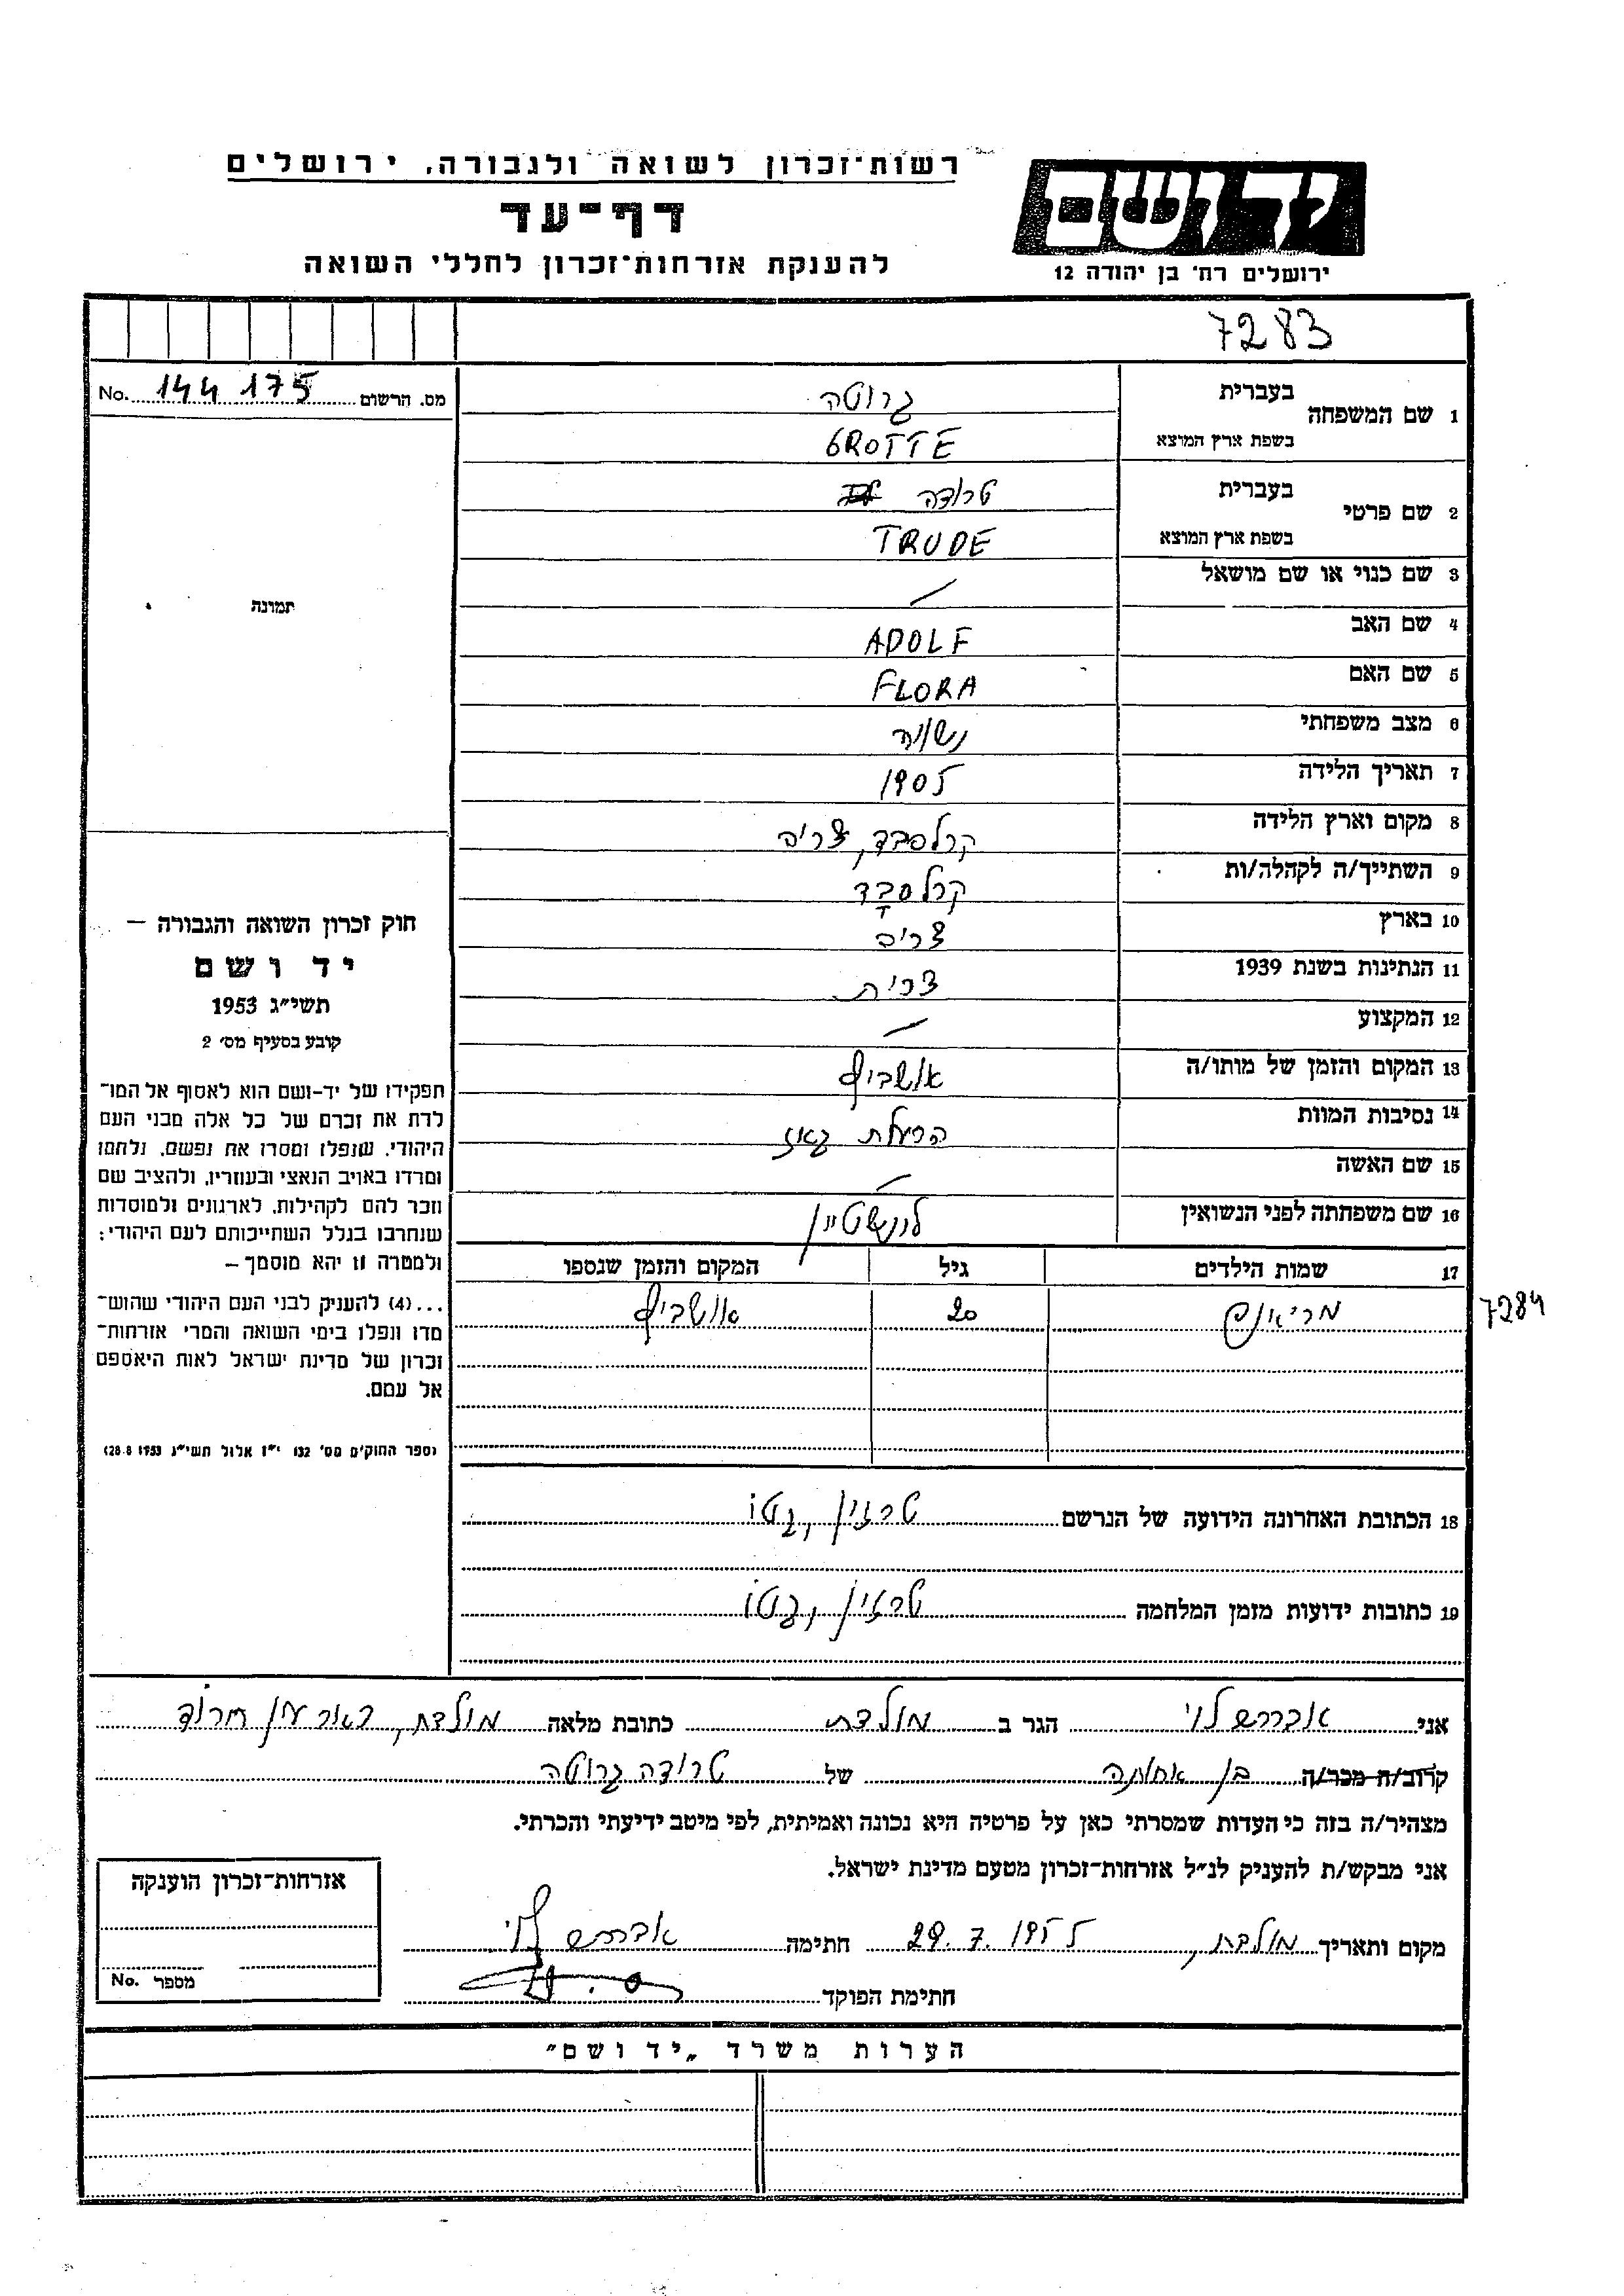 רשות־זכרון לשואה ולגבורה, ירושלים
דף־עד
להענקת אזרחות־זכרון לחללי השואה
יד ושם
ירושלים רח' בן יהודה 12
7283
מס. הרשום 144 175 No.
1 שם המשפחה בעברית גרוטה
בשפת ארץ המוצא GROTTE
2 שם פרטי בעברית טרודה
בשפת ארץ המוצא TRUDE
3 שם כנוי או שם מושאל /
4 שם האב ADOLF
5 שם האם FLORA
6 מצב משפחתי נשואה
7 תאריך הלידה 1905
8 מקום וארץ הלידה קרלסבד, צ'כיה
9 השתייך/ה לקהלה/ות קרלסבד
10 בארץ צ'כיה
11 הנתינות בשנת 1939 צ'כית
12 המקצוע /
13 המקום והזמן של מותו/ה אושביץ
14 נסיבות המוות הרעלת גאז
15 שם האשה /
16 שם משפחתה לפני הנשואין
17 שמות הילדים גיל המקום והזמן שנספו
20 אושביץ 7284
18 הכתובת האחרונה הידועה של הנרשם טרזין, גטו
19 כתובות ידועות מזמן המלחמה טרזין, גטו
תמונה
חוק זכרון השואה והגבורה –
יד ושם
תשי״ג 1953
קובע בסעיף מס' 2
תפקידו של יד-ושם הוא לאסוף אל המו־
לדת את זכרם של כל אלה מבני העם
היהודי, שנפלו ומסרו את נפשם, נלחמו
ומרדו באויב הנאצי ובעוזריו, ולהציב שם
וזכר להם לקהילות, לארגונים ולמוסדות
שנחרבו בגלל השתייכותם לעם היהודי;
ולמטרה זו יהא מוסמך –
...(4) להעניק לבני העם היהודי שהוש־
מדו ונפלו בימי השואה והמרי אזרחות־
זכרון של מדינת ישראל לאות היאספם
אל עמם.
(ספר החוקים מס' 132 י״ז אלול תשי״ג 28.8.1953)
אני אברהם לוי הגר ב מולדת כתובת מלאה מולדת, דאר עין חרוד
קרוב/ה מכר/ה בן אחותה של טרודה גרוטה
מצהיר/ה בזה כי העדות שמסרתי כאן על פרטיה היא נכונה ואמיתית, לפי מיטב ידיעתי והכרתי.
אני מבקש/ת להעניק לנ״ל אזרחות־זכרון מטעם מדינת ישראל.
מקום ותאריך מולדת, 29.7.1955 חתימה אברהם לוי
חתימת הפוקד
אזרחות־זכרון הוענקה
מספר No.
הערות משרד „יד ושם״